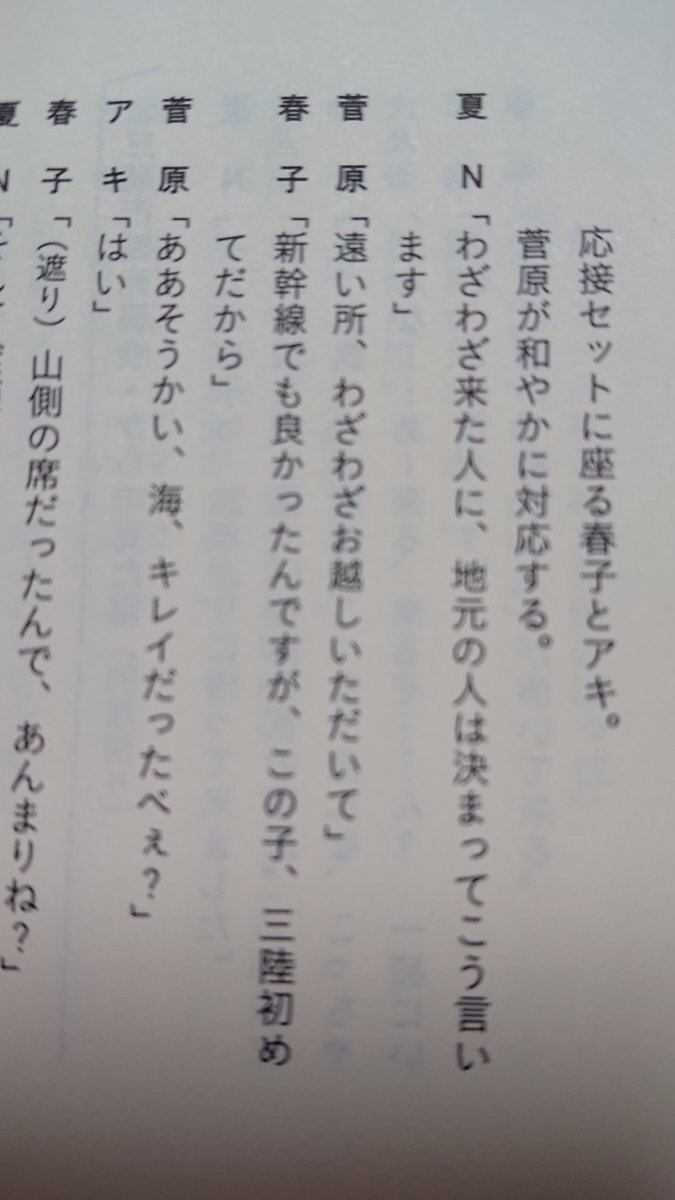 応接セットに座る春子とアキ。
菅原が和やかに対応する。
夏 N「わざわざ来た人に、地元の人は決まってこう言い
ます」
菅 原「遠い所、わざわざお越しいただいて」
春 子「新幹線でも良かったんですが、この子、三陸初め
てだから」
菅 原「ああそうかい、海、キレイだったべぇ?」
ア キ「はい」
春 子「(遮り)山側の席だったんで、あんまりね?」
夏 N「